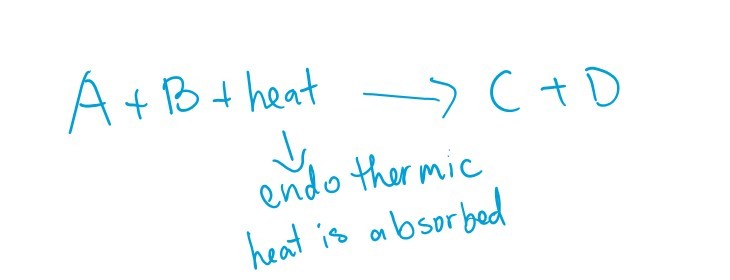 A + B + heat → C + D
↓
endothermic
heat is absorbed